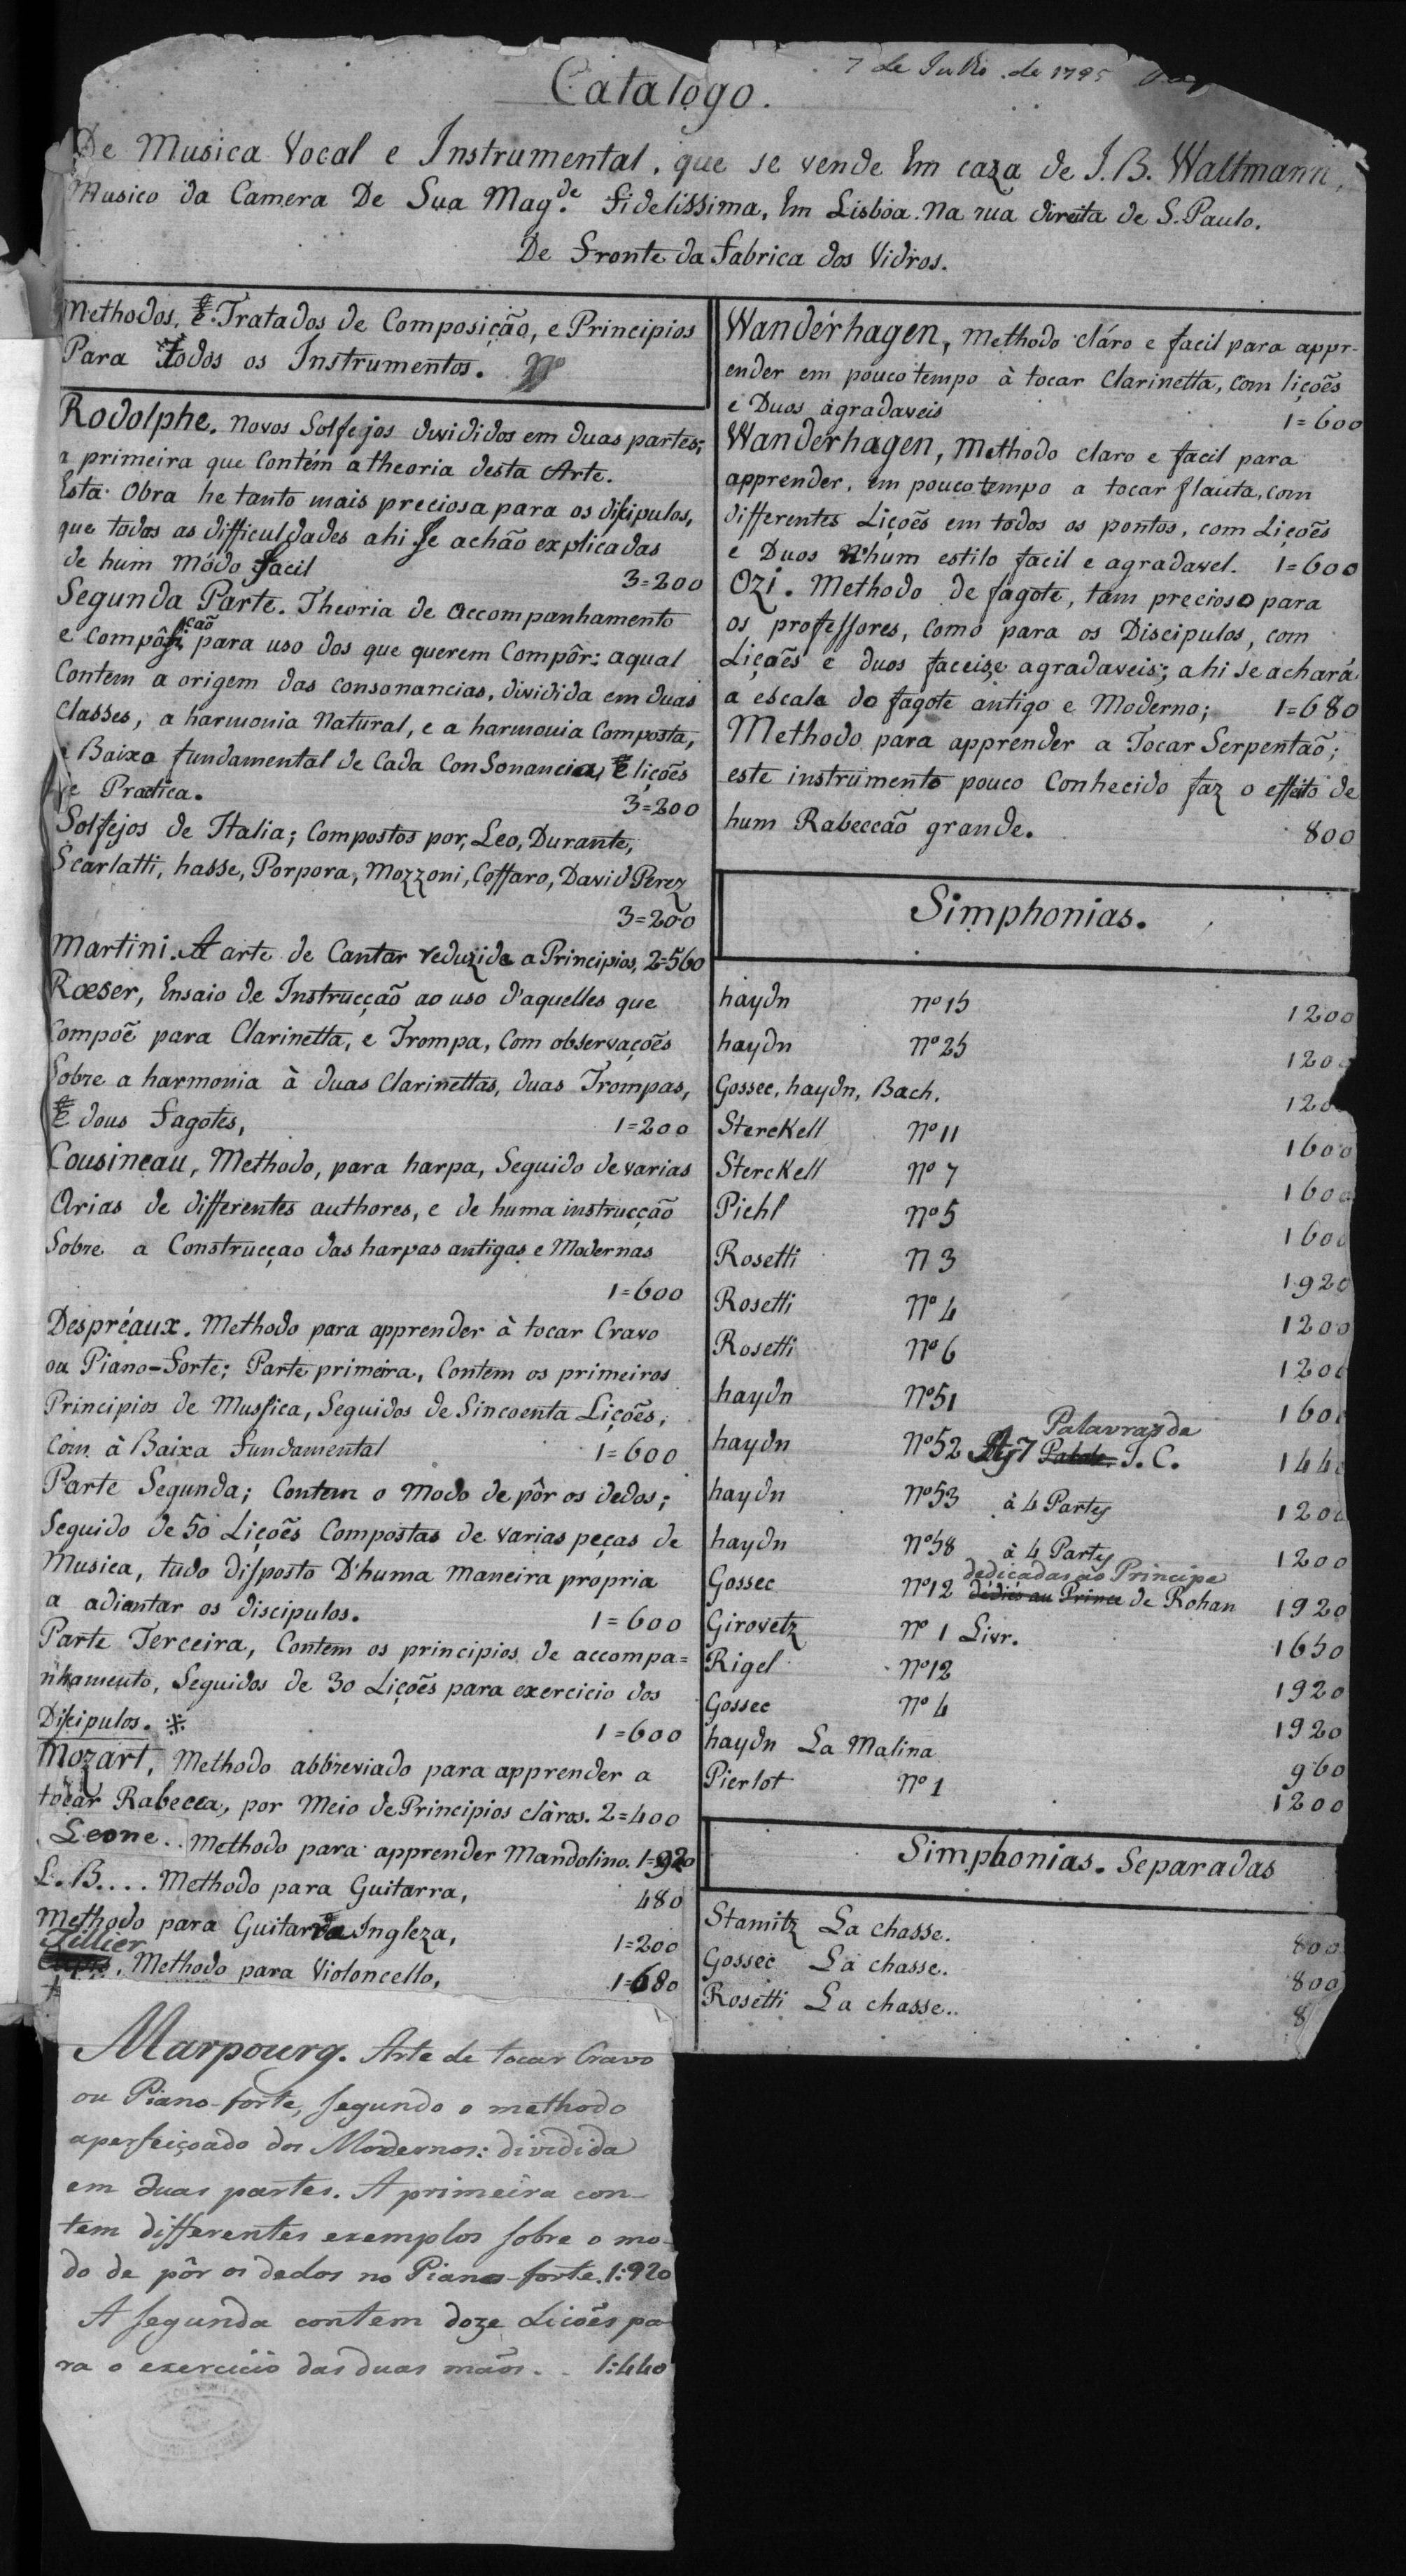 7 de Julho de 1795
Catalogo.
De Musica Vocal e Instrumental, que se vende Em caza de J. B. Waltmann,
Musico da Camera De Sua Mag.de Fidelissima, Em Lisboa. Na rua direita de S. Paulo.
De Fronte da Fabrica dos Vidros.
Methodos, E Tratados de Composição, e Principios
Para todos os Instrumentos.
Rodolphe. Novos Solfejos divididos em duas partes;
a primeira que Contém a theoria desta Arte.
Esta Obra he tanto mais preciosa para os discipulos,
que todas as difficuldades ahi se achão explicadas
de hum módo facil 3=200
Segunda Parte. Theoria de accompanhamento
e Composição para uso dos que querem Compôr: aqual
Contem a origem das consonancias, dividida em duas
Classes, a harmonia Natural, e a harmonia Composta,
e Baixo fundamental de Cada Consonancia, E lições
de Practica. 3=200
Solfejos de Italia; Compostos por, Leo, Durante,
Scarlatti, hasse, Porpora, Mozzoni, Coffaro, David Perez
3=200
Martini. A arte de Cantar reduzida a Principios, 2=560
Rœser, Ensaio de Instrucção ao uso d'aquelles que
Compoẽ para Clarinetta, e Trompa, Com observações
Sobre a harmonia à duas Clarinettas, duas Trompas,
E dous Fagotes, 1=200
Cousineau, Methodo, para harpa, Seguido de varias
Arias de differentes authores, e de huma instrucção
Sobre a Construcçao das harpas antigas e Modernas
1=600
Despréaux. Methodo para apprender à tocar Cravo
ou Piano-Forte; Parte primeira, Contem os primeiros
Principios de Mussica, Seguidos de Sincoenta Lições,
Com à Baixa Fundamental 1=600
Parte Segunda; Contem o Modo de pôr os dedos;
Seguido de 50 Lições Compostas de varias peças de
Musica, tudo disposto D'huma maneira propria
a adiantar os discipulos. 1=600
Parte Terceira, Contem os principios de accompa=
nhamento, Seguidos de 30 Lições para exercicio dos
Discipulos. 1=600
Mozart, Methodo abbreviado para apprender a
tocar Rabecca, por Meio de Principios cláros. 2=400
Leone.. Methodo para apprender Mandolino. 1=920
L. B.... Methodo para Guitarra, 480
Methodo para Guitarra Ingleza, 1=200
Tillier
Methodo para Violoncello, 1=680
Marpourg. Arte de tocar Cravo
ou Piano-forte, segundo o methodo
aperfeiçoado dos Modernos: dividida
em duas partes. A primeira con-
tem differentes exemplos sobre o mo-
do de pôr os dedos no Piano-forte. 1:920
A segunda contem doze Licões pa-
ra o exercicio das duas mãos. 1:440
Wandérhagen, Methodo cláro e facil para appr-
ender em pouco tempo à tocar Clarinetta, Com liçoẽs
e Duos ágradaveis 1=600
Wandérhagen, Methodo claro e facil para
apprender, em pouco tempo a tocar flauta, com
differentes Liçoẽs em todos os pontos, com Liçoẽs
e Duos N'hum estilo facil e agradavel. 1=600
Ozi. Methodo de fagote, tam precioso para
os professores, Como para os Discipulos, com
Liçaẽs e duos faceis, e agradaveis; ahi se achará
a escala do fagote antigo e Moderno; 1=680
Methodo para apprender a Tocar Serpentaõ;
este instrumento pouco Conhecido faz o effeito de
hum Rabeccão grande. 800
Simphonias.
haydn Nº 15 1200
haydn Nº 25 1200
Gossec, haydn, Bach. 120
Sterckell Nº 11 1600
Sterckell Nº 7 1600
Pichl Nº 5 1600
Rosetti N 3 1920
Rosetti Nº 4 1200
Rosetti Nº 6 1200
haydn Nº 51 1600
Palavras da
haydn Nº 52 J. C. 1440
haydn Nº 53 à 4 Partes 1200
haydn Nº 58 à 4 Partes 1200
dedicadas ao Principe
Gossec Nº 12 dédiés au Prince de Rohan 1920
Girovetz Nº 1 Livr. 1650
Rigel Nº 12 1920
Gossec Nº 4 1920
haydn La Malina 960
Pierlot Nº 1 1200
Simphonias. Separadas
Stamitz La chasse. 800
Gossec La chasse. 800
Rosetti La chasse.. 8